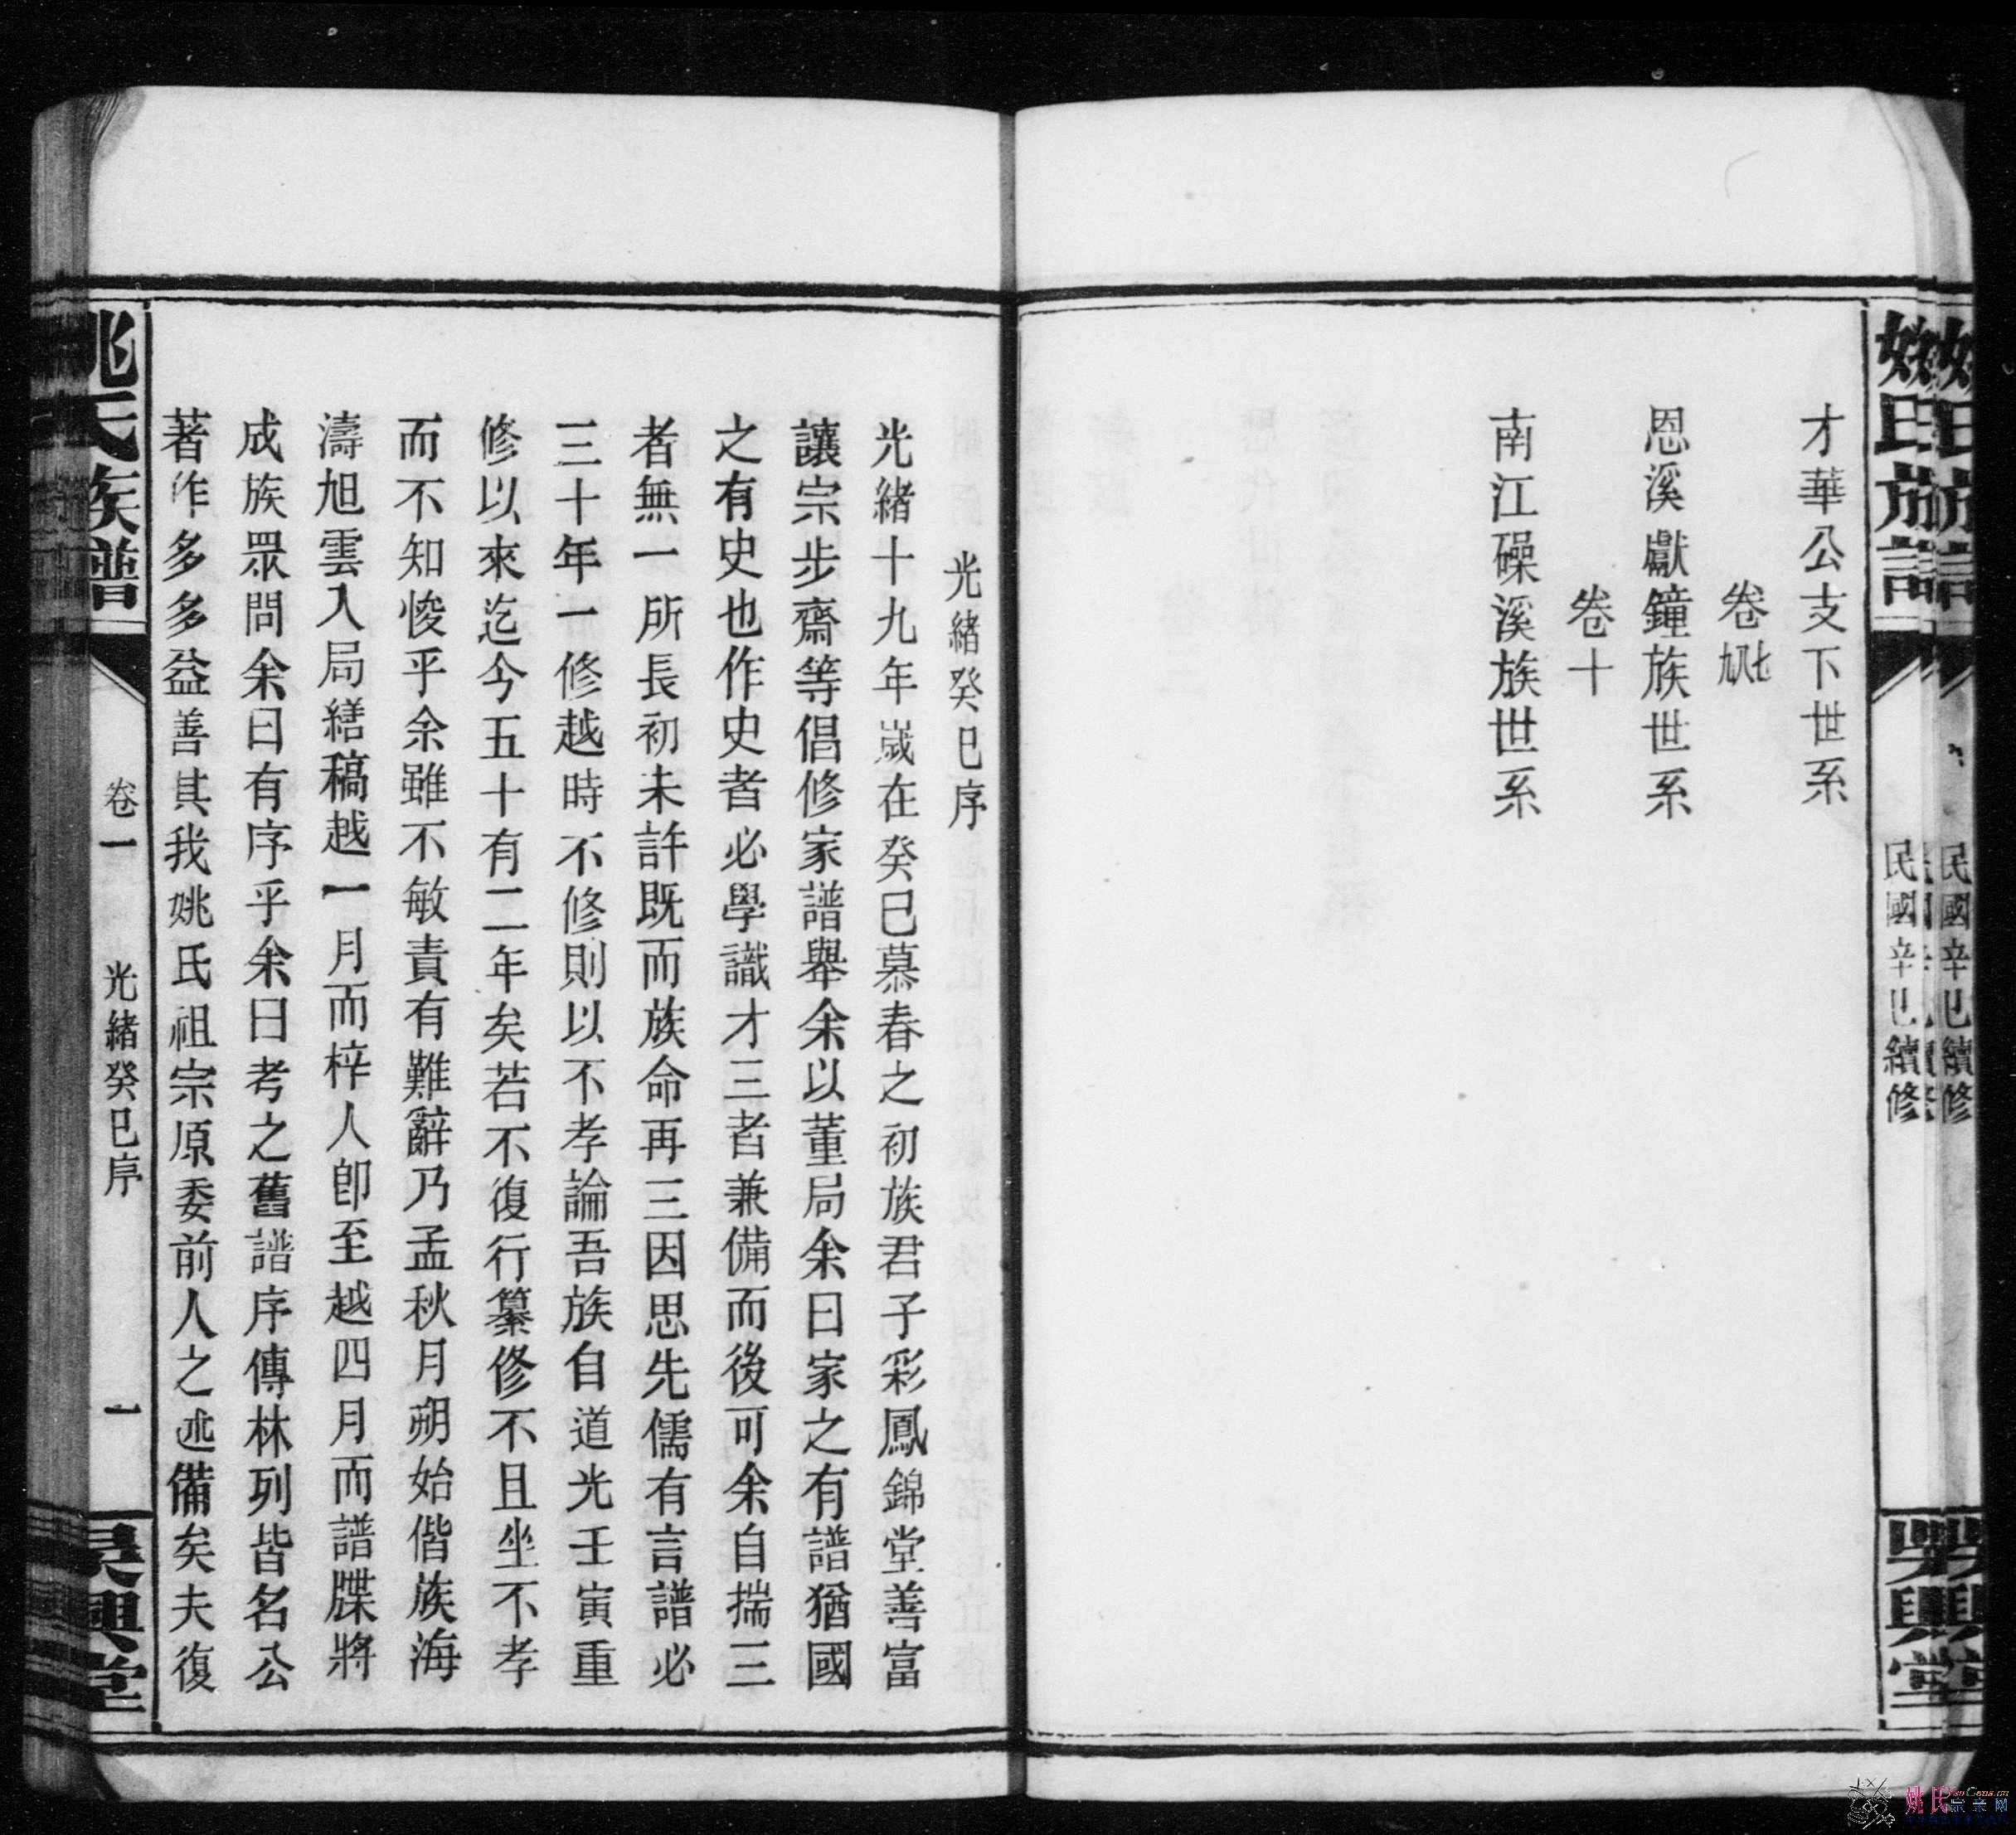 姚氏族譜
民國辛巳續修
吳興堂
才華公支下世系
卷九
恩溪獻鐘族世系
卷十
南江磉溪族世系
光緒癸巳序
光緒十九年嵗在癸巳慕春之初族君子彩鳳錦堂善富
讓宗步齋等倡修家譜舉余以董局余曰家之有譜猶國
之有史也作史者必學識才三者兼備而後可余自揣三
者無一所長初未許既而族命再三因思先儒有言譜必
三十年一修越時不修則以不孝論吾族自道光壬寅重
修以來迄今五十有二年矣若不復行纂修不且坐不孝
而不知悛乎余雖不敏責有難辭乃孟秋月朔始偕族海
濤旭雲入局繕稿越一月而梓人卽至越四月而譜牒將
成族眾問余曰有序乎余曰考之舊譜序傳林列皆名公
著作多多益善其我姚氏祖宗原委前人之述備矣夫復
姚氏族譜
卷一
光緒癸巳序
一
吳興堂
姚氏宗亲网